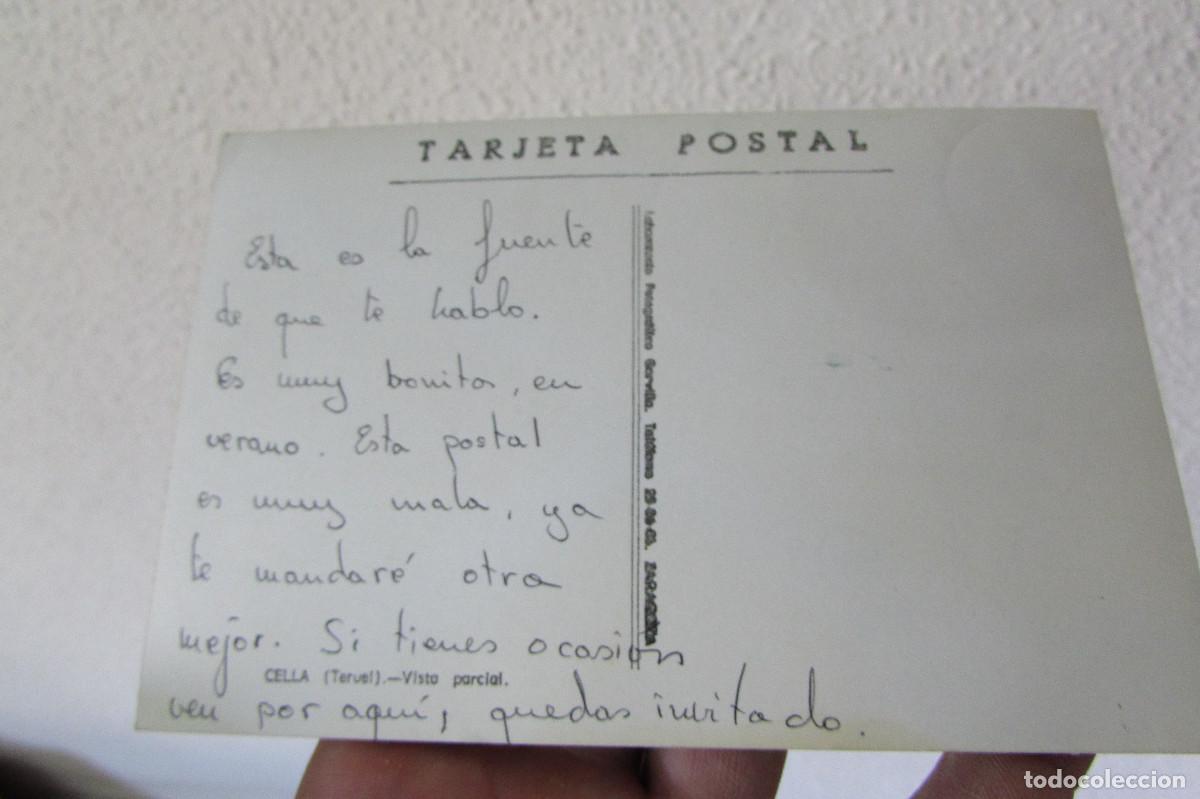 TARJETA POSTAL
Esta es la fuente
de que te hablo.
Es muy bonita, en
verano. Esta postal
es muy mala, ya
te mandaré otra
mejor. Si tienes ocasión
CELLA (Teruel).—Vista parcial.
ven por aquí, quedas invitado.
Laboratorio Fotográfico Teléfono ZARAGOZA
todocoleccion